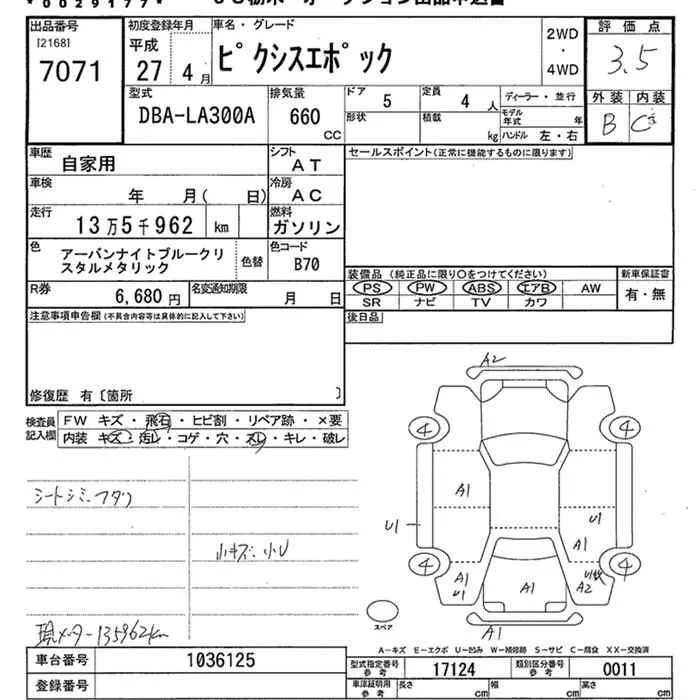 *0029177*
出品番号
[2168]
7071
初度登録年月
平成
27 4月
車名・グレード
ピクシスエポック
2WD
・
4WD
評価点
3.5
外装 内装
B C
型式
DBA-LA300A
排気量
660
CC
ドア 5
定員 4 人
形状
積載 kg
ディーラー・並行
モデル年式 年
ハンドル 左・右
車歴
自家用
シフト
AT
セールスポイント(正常に機能するものに限ります)
車検
年 月( 日)
冷房
AC
走行
13万5千962 km
燃料
ガソリン
色
アーバンナイトブルークリ
スタルメタリック
色替
色コード
B70
R券
6,680 円
名変通知期限
月 日
装備品(純正品に限り○をつけてください)
PS PW ABS エアB AW
SR ナビ TV カワ
新車保証書
有・無
注意事項申告欄(不具合内容等は具体的に記入して下さい)
後日品
修復歴 有〔箇所 〕
検査員
記入欄
FW キズ・飛石・ヒビ割・リペア跡・×要
内装 キズ・汚レ・コゲ・穴・スレ・キレ・破レ
シートシミ・フタワ
小キズ・小U
現メーター135962km
A2
4
4
A1
U1
U1
A1
4
4
A1
U1
A1
A2
スペア
A1
A-キズ E-エクボ U-凹み W-補修跡 S-サビ C-腐食 XX-交換済
車台番号
1036125
登録番号
型式指定番号
参考
17124
類別区分番号
参考
0011
車庫証明用
参考
長さ cm
幅 cm
高さ cm